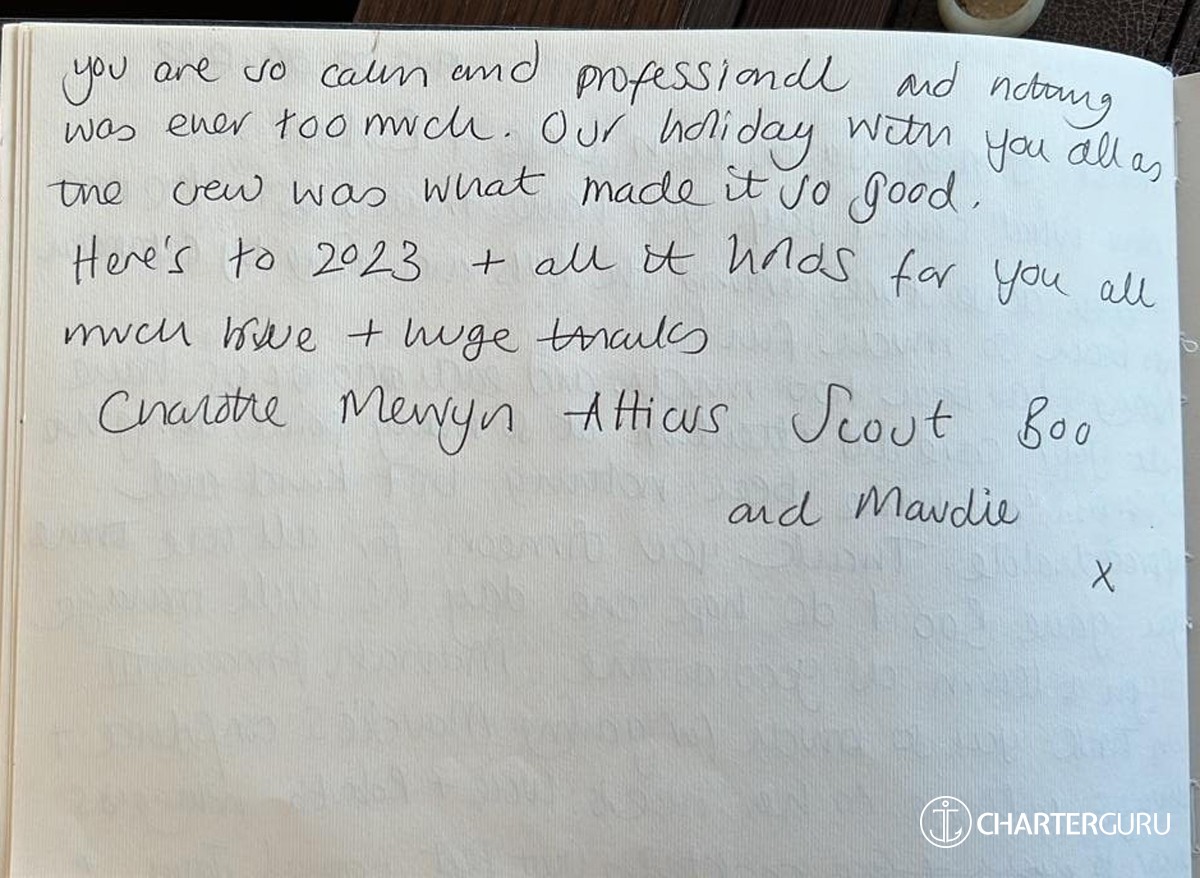 you are so calm and professional and nothing
was ever too much. Our holiday with you all as
the crew was what made it so good.
Here's to 2023 + all it holds for you all
much love + huge thanks
Charlotte Merryn Atticus Scout Boo
and Maudie
x
CHARTERGURU